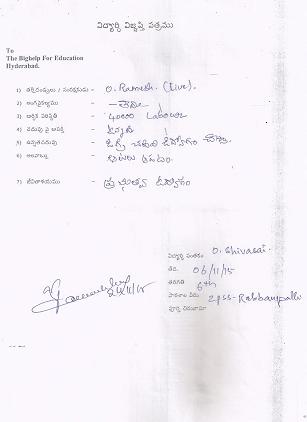 విద్యార్థి విజ్ఞప్తి పత్రము
To
The Bighelp For Education
Hyderabad.
1) తల్లిదండ్రులు / సంరక్షకుడు - O. Ramesh. (Live).
2) అంగవైకల్యము - లేదు
3) ఆర్థిక పరిస్థితి - 40000 Labour
4) చదువు పై ఆసక్తి -
5) ఉన్నతచదువు - డిగ్రీ చదివి ఉద్యోగం
6) అలవాట్లు - ఆటలు ఆడటం
7) జీవితాశయము - ప్రభుత్వ ఉద్యోగం
విద్యార్థి సంతకం O. Shivasai.
తేది. 06/11/15
తరగతి 6th
పాఠశాల పేరు ZPSS-
పూర్తి చిరునామా
24/11/15